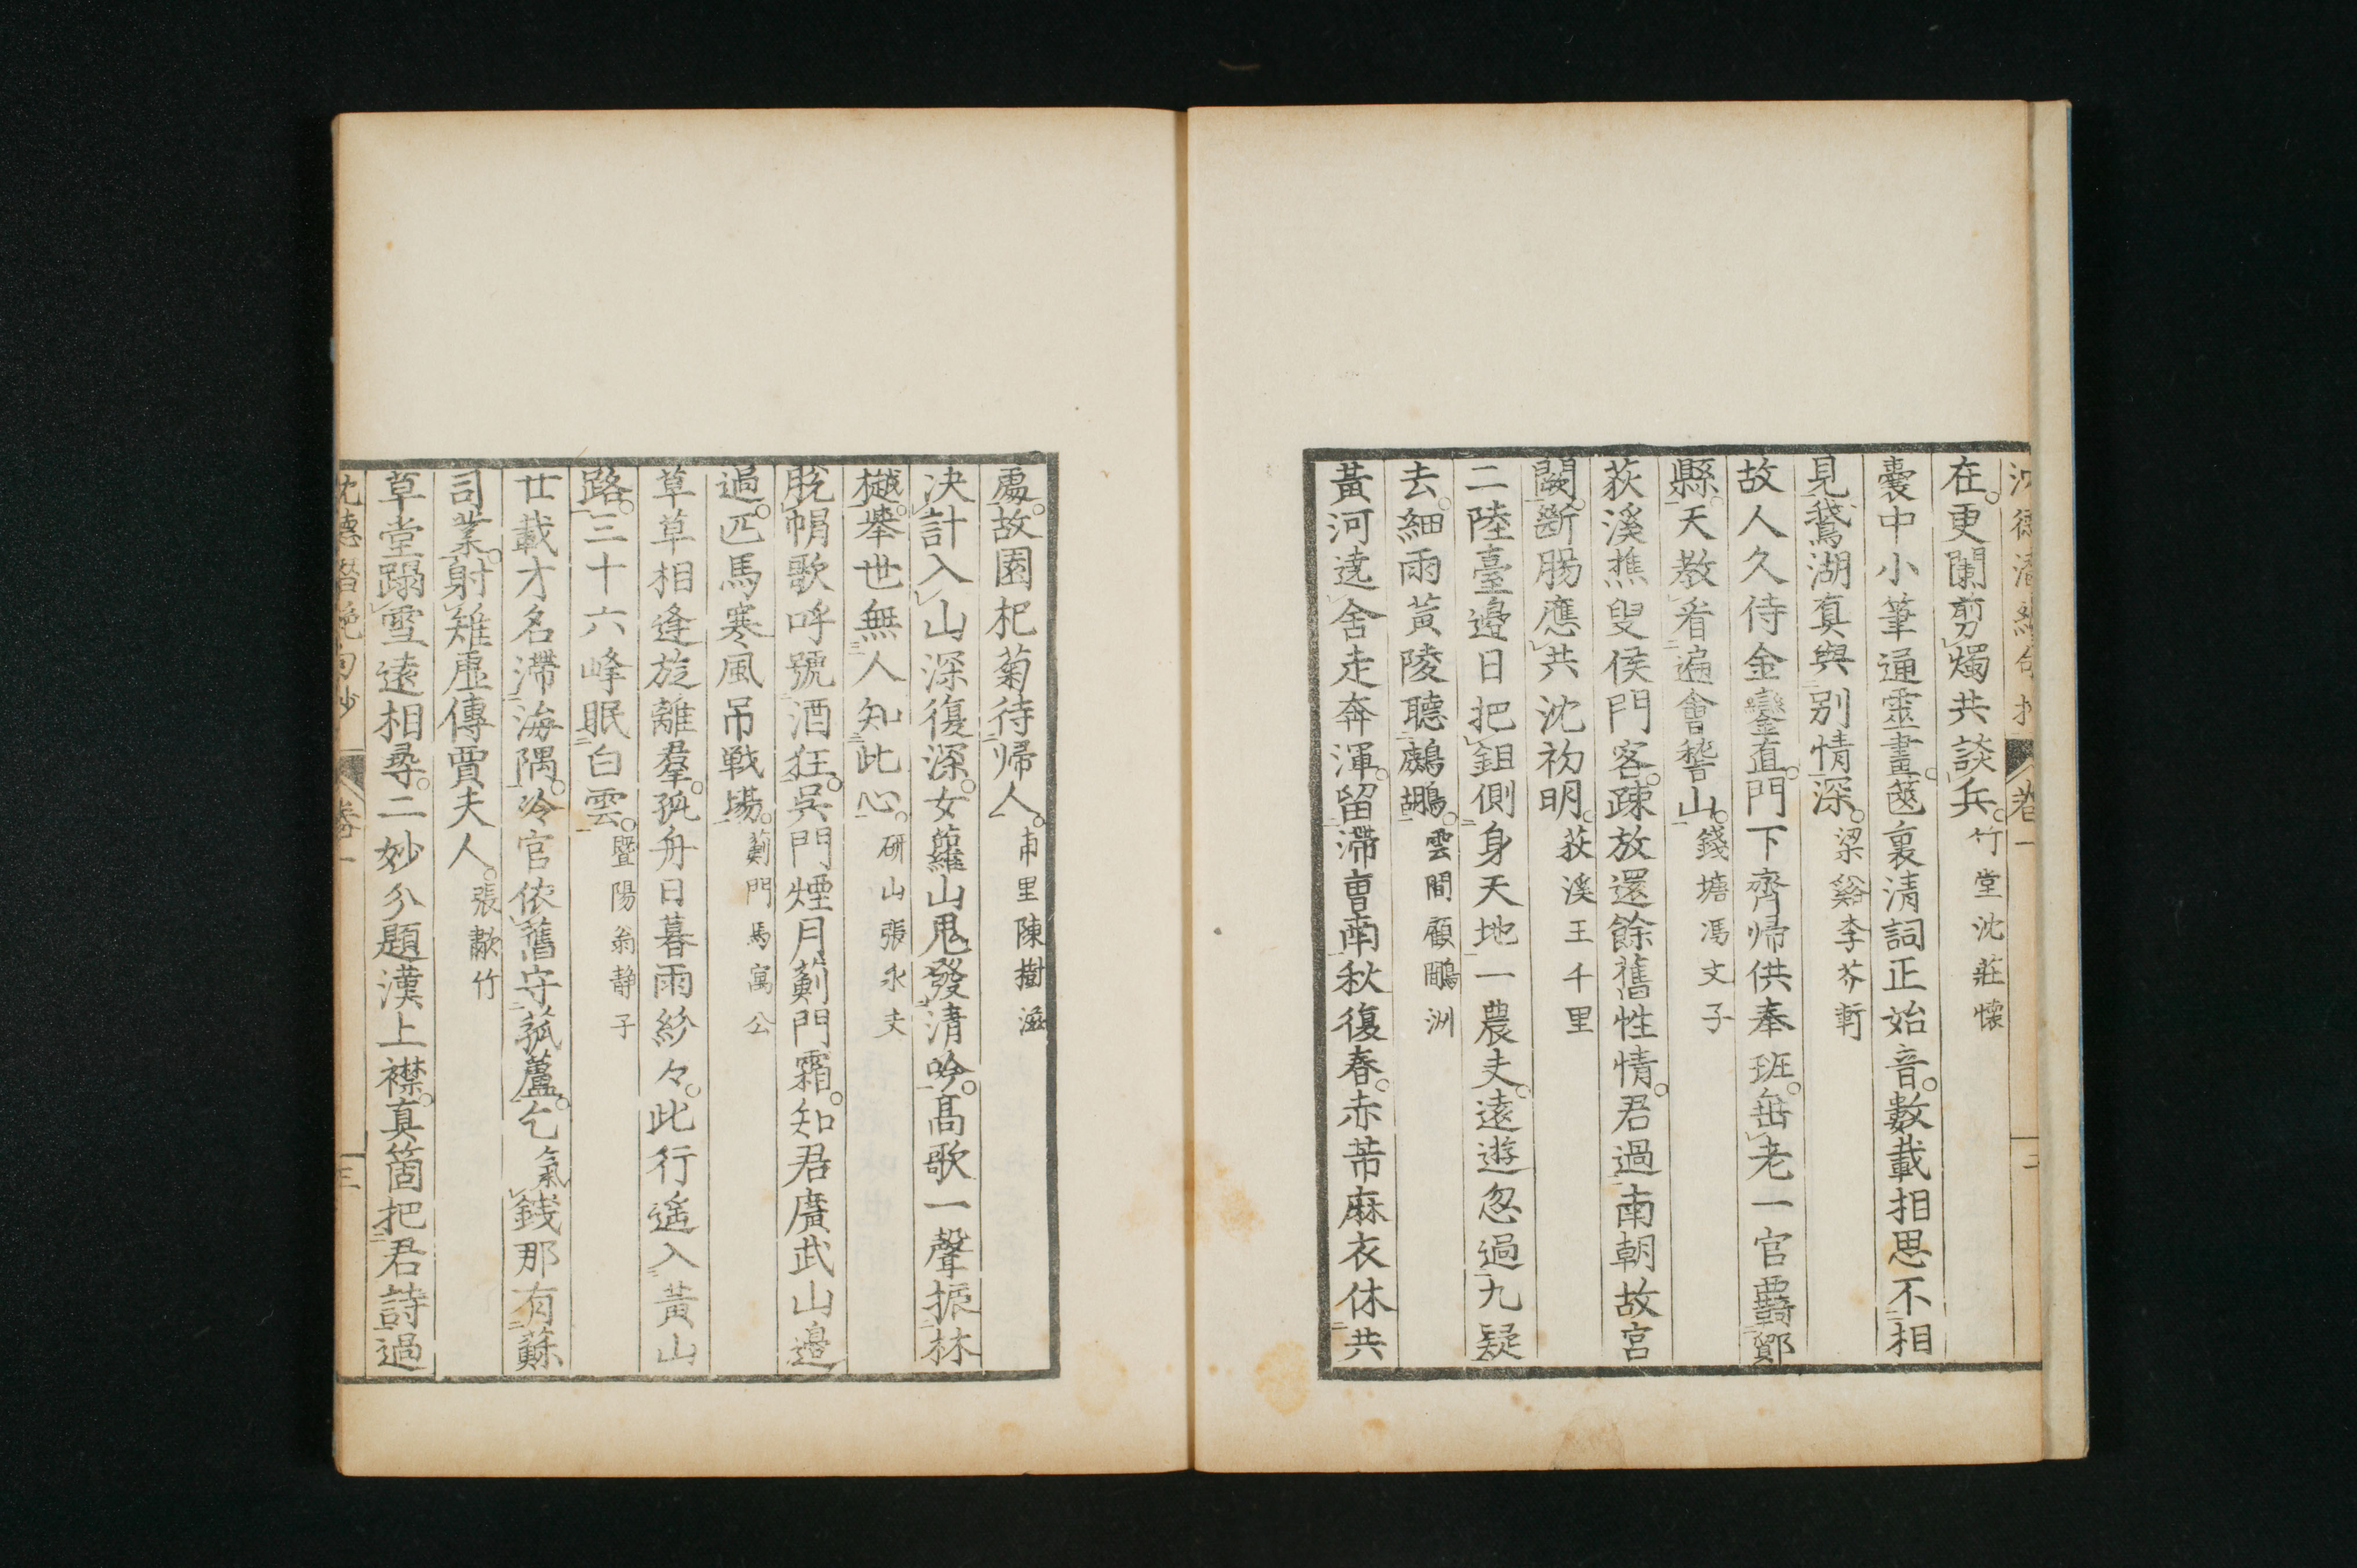 沈德潛絶句抄 卷一 二
在更闌剪燭共談兵竹堂沈莊懷
囊中小筆通靈畫篋裏清詞正始音數載相思不相
見鵞湖真與別情深梁谿李芥軒
故人久侍金鑾直門下齊帰供奉班毎老一官覊鄭
縣天教看遍會稽山錢塘馮文子
荻溪樵叟侯門客疎放還餘舊性情君過南朝故宮
闕斷腸應共沈初明荻溪王千里
二陸臺邉日把鉏側身天地一農夫遠遊忽過九疑
去細雨黃陵聽鷓鴣雲間顧鶤洲
黃河遶舍走奔渾留滯曹南秋復春赤芾麻衣休共
處故園杞菊待帰人甫里陳樹滋
决計入山深復深女蘿山鬼發清吟高歌一聲振林
樾擧世無人知此心研山張永夫
脫帽歌呼號酒狂吳門煙月薊門霜知君廣武山邉
過匹馬寒風吊戦場薊門馬寓公
草草相逢旋離羣孤舟日暮雨紛々此行遙入黃山
路三十六峰眠白雲暨陽翁静子
廿載才名滯海隅冷官依舊守菰蘆乞氣錢那有蘇
司業射雉虛傳賈夫人張歗竹
草堂蹋雪遠相尋二妙分題漢上襟真箇把君詩過
沈德潛絶句抄 卷一 三